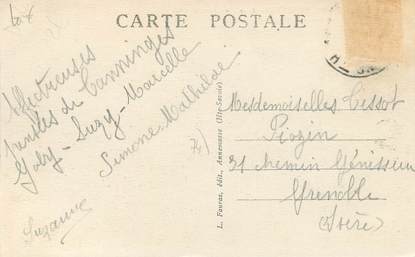 CARTE POSTALE
Affectueuses
pensées de Canninges
Gaby - Suzy - Marcelle
Simone. Mathilde
Suzanne
L. Favraz, édit., Annemasse (Hte-Savoie)
Mesdemoiselles Tissot
31 chemin Génisseux
Grenoble
(Isère)